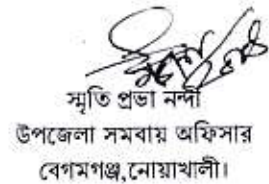 স্মৃতি প্রভা নন্দী
উপজেলা সমবায় অফিসার
বেগমগঞ্জ,নোয়াখালী।